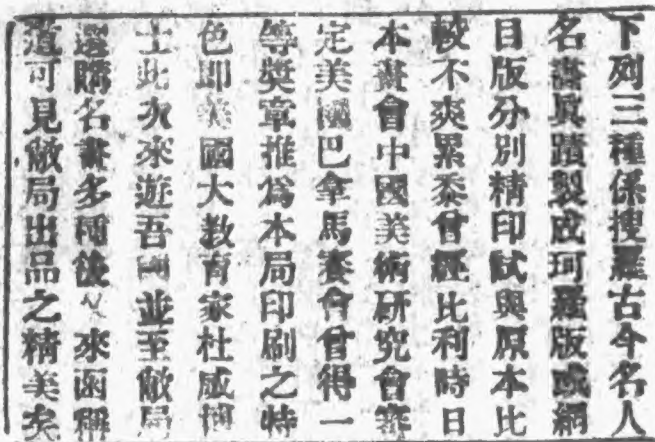 下列三種係搜羅古今名人
名畵眞蹟製成珂羅版或網
目版分別精印試與原本比
較不爽累黍曾經比利時日
本畫會中國美術研究會審
定美國巴拿馬賽會曾得一
等獎章推爲本局印刷之特
色即美國大教育家杜威博
士此次來遊吾國並至敝局
選購名畫多種後又來函稱
道可見敝局出品之精美矣